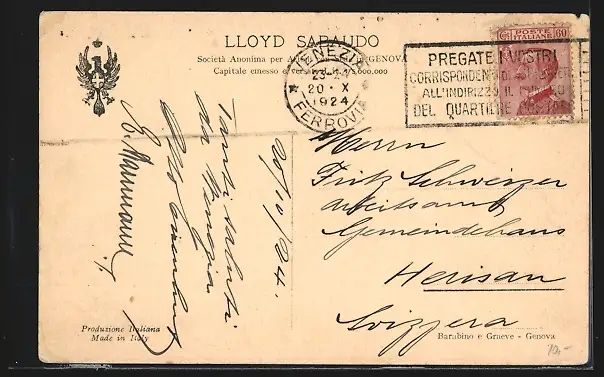 LLOYD SABAUDO
Società Anonima per Azioni GENOVA
Capitale emesso e versato
VENEZIA
20 · X
1924
FERROVIA
POSTE ITALIANE 60
PREGATE I VOSTRI
CORRISPONDENTI DI
ALL'INDIRIZZO IL NUMERO
DEL QUARTIERE POSTALE
20/10/24.
Tanti saluti
da Venezia
Herrn
Fritz Schweizer
Arbeitsamt
Gemeindehaus
Herisau
Svizzera
Produzione Italiana
Made in Italy
Barabino e Graeve - Genova
70,-